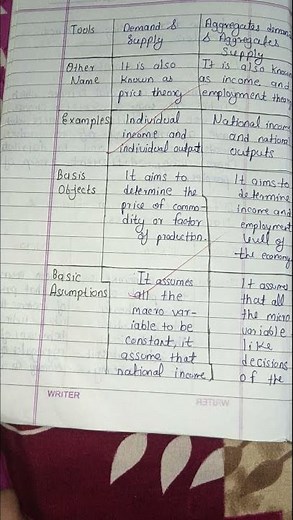 Tools
Demand &
Supply
Aggregates deman
& Aggregates
Supply
Other
Name
It is also
known as
price theory
It is also know
as income and
employment theor
Examples
Individual
income and
individual output
National incom
and national
outputs
Basis
Objects
It aims to
determine the
price of commo-
dity or factor
of production.
It aims to
determine
income and
employment
level of
the economy
Basic
Asumptions
It assumes
all the
macro var-
iable to be
constant, it
assume that
national income
It assume
that all
the micro
variable
like
decisions
of the
WRITER